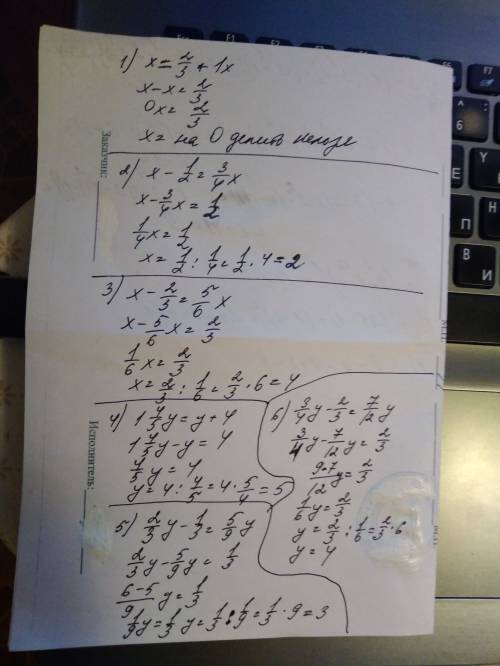 1) x = 2/3 + 1x
x - x = 2/3
0x = 2/3
x = на 0 делить нельзя
2) x - 1/2 = 3/4 x
x - 3/4 x = 1/2
1/4 x = 1/2
x = 1/2 : 1/4 = 1/2 · 4 = 2
3) x - 2/3 = 5/6 x
x - 5/6 x = 2/3
1/6 x = 2/3
x = 2/3 : 1/6 = 2/3 · 6 = 4
4) 1 4/5 y = y + 4
1 4/5 y - y = 4
4/5 y = 4
y = 4 : 4/5 = 4 · 5/4 = 5
5) 2/3 y - 1/3 = 5/9 y
2/3 y - 5/9 y = 1/3
6-5/9 y = 1/3
1/9 y = 1/3 y = 1/3 : 1/9 = 1/3 · 9 = 3
6) 3/4 y - 2/3 = 7/12 y
3/4 y - 7/12 y = 2/3
9-7/12 y = 2/3
1/6 y = 2/3
y = 2/3 : 1/6 = 2/3 · 6
y = 4
Заказчик:
Исполнитель:
F1
F2
F3
F4
F5
F6
F7
6